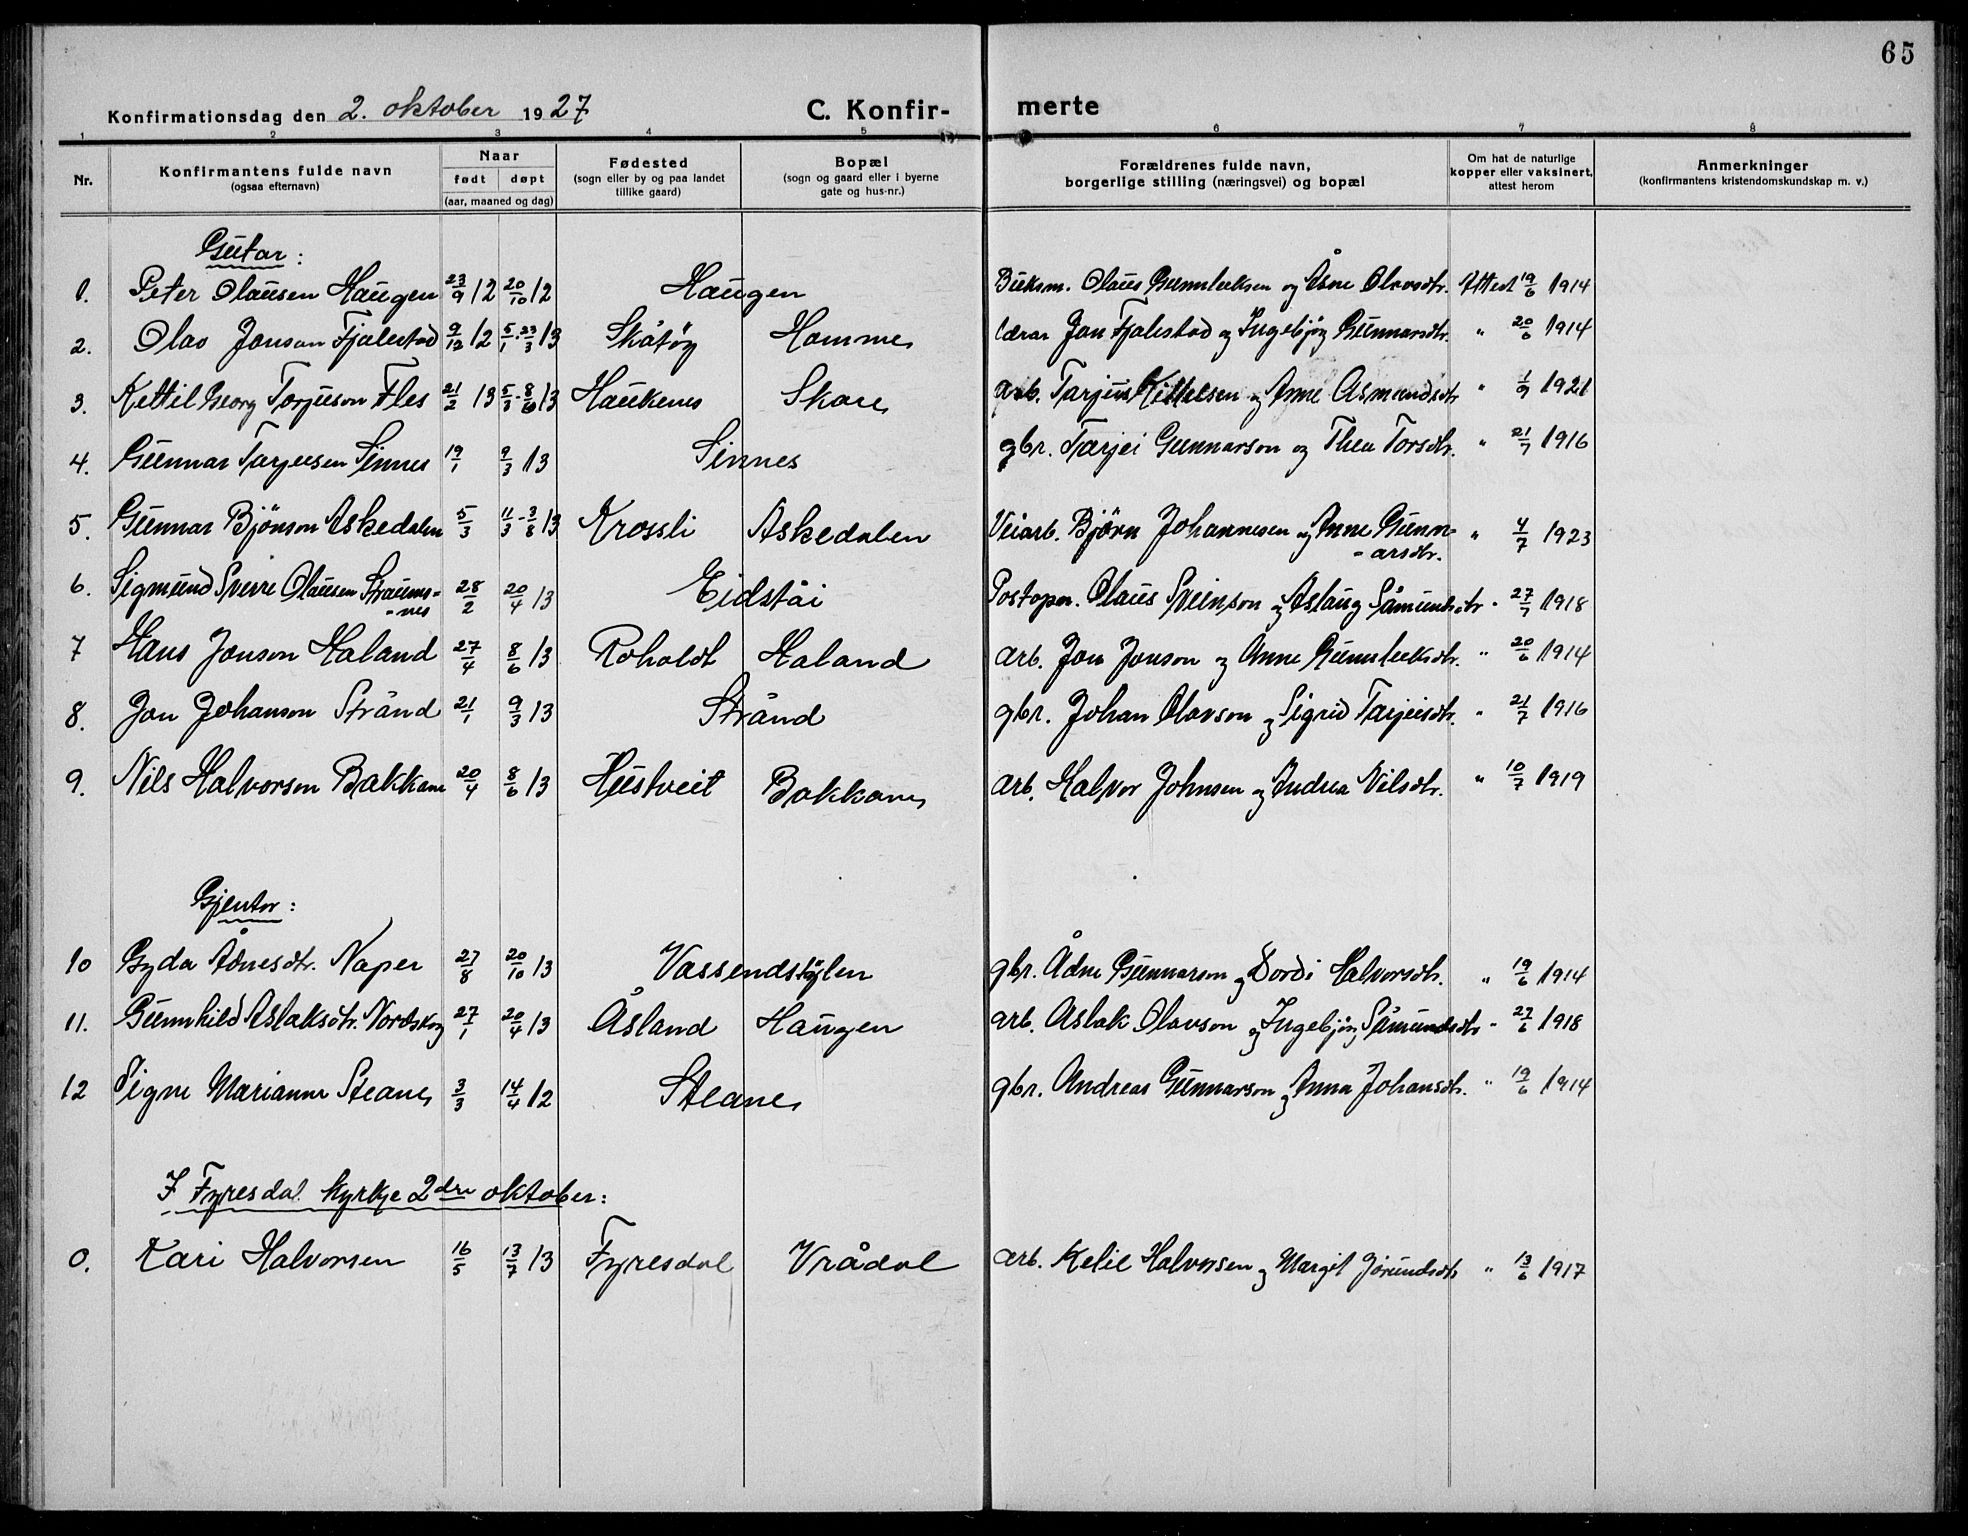 65
Konfirmationsdag den 2. oktober 1927 C. Konfir- merte
1 2 3 4 5 6 7 8
Nr. Konfirmantens fulde navn (ogsaa efternavn) Naar født døpt (aar, maaned og dag) Fødested (sogn eller by og paa landet tillike gaard) Bopæl (sogn og gaard eller i byerne gate og hus-nr.) Forældrenes fulde navn, borgerlige stilling (næringsvei) og bopæl Om hat de naturlige kopper eller vaksinert, attest herom Anmerkninger (konfirmantens kristendomskundskap m. v.)
Gutar:
1. Peter Olausen Haugen 23/9 12 20/10 12 Haugen Buksm. Olaus Gunnleiksen og Åsne Olavsdtr. Attest 19/6 1914
2. Olav Jonson Fjalestad 9/12 12 5/1 - 23/3 13 Skåtøy Hamme lærar Jon Fjalestad og Ingebjög Gunnarsdtr. " 20/6 1914
3. Kettil Georg Torjuson Fles 21/2 13 5/3 - 8/6 13 Haukenes Skare arb. Tarjus Kittelsen og Anne Asmundsdtr " 1/9 1921
4. Gunnar Tarjeisen Sinnes 19/1 9/3 13 Sinnes gbr. Tarjei Gunnarson og Thea Torsdtr. " 21/7 1916
5. Gunnar Bjönson Askedalen 5/3 11/3 - 3/8 13 Krossli Askedalen Veiarb. Björn Johannesen og Anne Gunn- " 4/7 1923
-arsdtr.
6. Sigmund Sverre Olausen Straums- 28/2 20/4 13 Eidståi Postopn. Olaus Sveinson og Aslaug Såmundsdtr " 27/7 1918
-nes
7 Hans Jonson Haland 27/4 8/6 13 Roholdt Haland arb. Jon Jonson og Anne Gunnleiksdtr. " 20/6 1914
8. Jon Johanson Strånd 21/1 9/3 13 Strånd gbr. Johan Olavson og Sigrid Tarjeisdtr. " 21/7 1916
9. Nils Halvorson Bakkane 20/4 8/6 13 Hustveit Bakkane arb. Halvor Johnsen og Andrea Nilsdtr. " 10/7 1919
Gjentor:
10 Gyda Ådnesdtr. Naper 27/8 20/10 13 Vassendstöylen gbr. Ådne Gunnarson og Dordi Halvorsdtr. " 19/6 1914
11. Gunnhild Aslaksdtr. Nordskog 27/1 20/4 13 Åsland Haugen arb. Aslak Olavson og Ingebjög Såmundsdtr " 27/6 1918
12 Signe Marianne Steane 3/3 14/4 12 Steane gbr. Andreas Gunnarson og Anna Johansdtr. " 19/6 1914
I Fyresdal kyrkje 2dre oktober:
0. Kari Halvorsen 16/5 13/7 13 Fyresdal Vrådal arb. Kelie Halvorsen og Margit Jörundsdtr " 13/6 1917